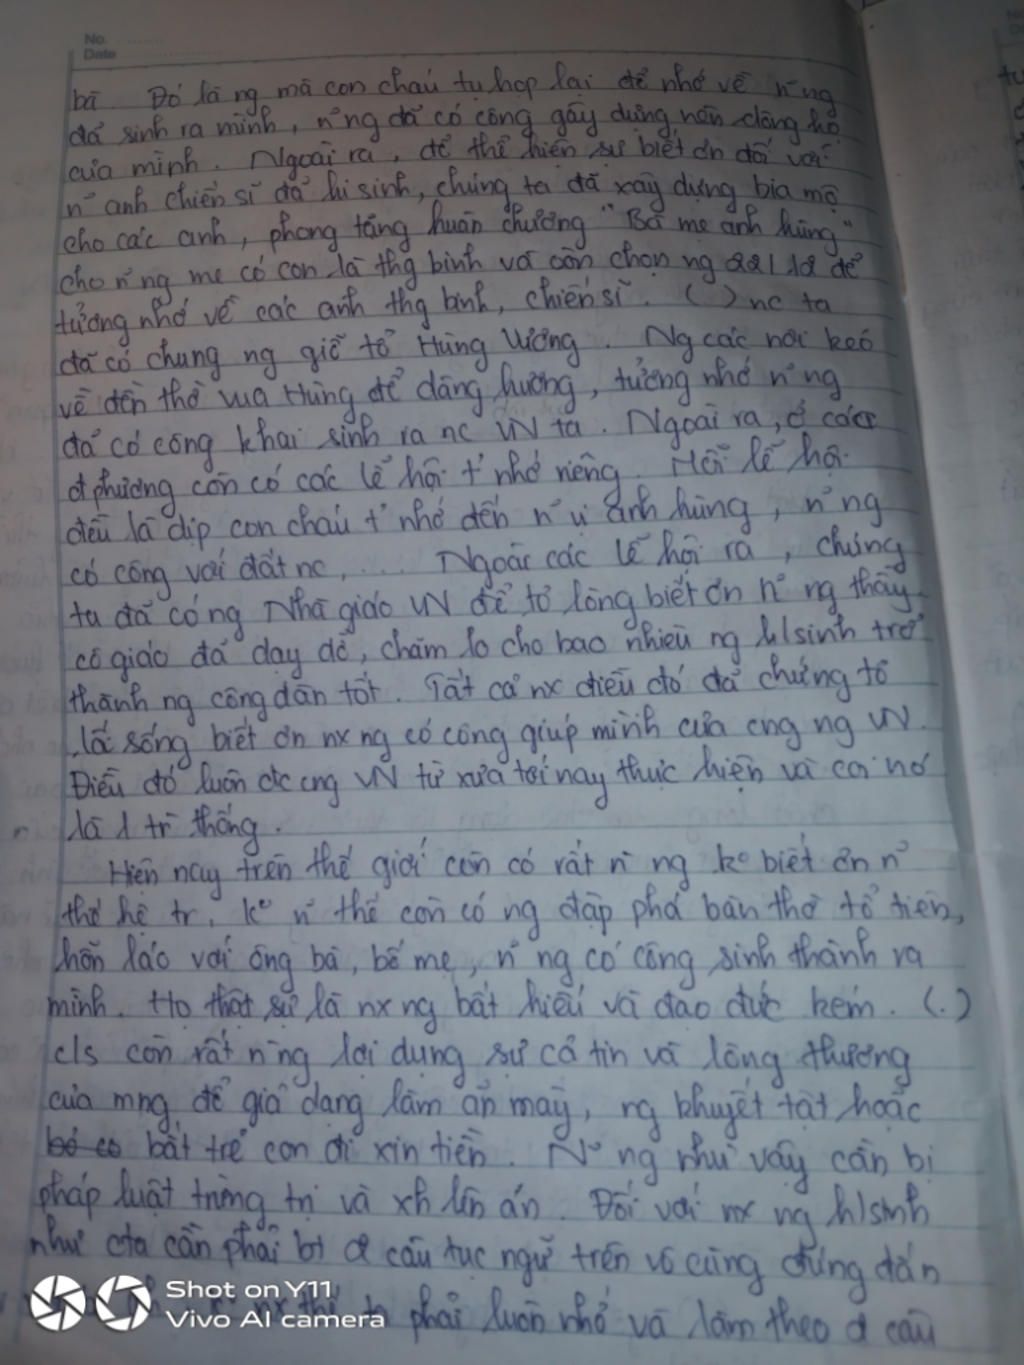 No.
Date
bà. Đó là ng mà con cháu tụ họp lại để nhớ về n~ng
đã sinh ra mình, n~ng đã có công gây dựng nên dòng họ
của mình. Ngoài ra, để thể hiện sự biết ơn đối với
n~ anh chiến sĩ đã hi sinh, chúng ta đã xây dựng bia mộ
cho các anh, phong tặng huân chương "Bà mẹ anh hùng"
cho n~ng mẹ có con là thg binh và còn chọn ng 22/12 để
tưởng nhớ về các anh thg binh, chiến sĩ. ( ) nc ta
đã có chung ng giỗ tổ Hùng Vương. Ng các nơi kéo
về đền thờ vua Hùng để dâng hương, tưởng nhớ n~ng
đã có công khai sinh ra nc VN ta. Ngoài ra, ở các
đ phương còn có các lễ hội t' nhớ riêng. Mỗi lễ hội
đều là dịp con cháu t' nhớ đến n~ vị anh hùng, n~ng
có công với đất nc, ... Ngoài các lễ hội ra, chúng
ta đã có ng Nhà giáo VN để tỏ lòng biết ơn n~ ng thầy
cô giáo đã dạy dỗ, chăm lo cho bao nhiêu ng h/sinh trở
thành ng công dân tốt. Tất cả nx điều đó đã chứng tỏ
lối sống biết ơn nx ng có công giúp mình của cng ng VN.
Điều đó luôn đc cng VN từ xưa tới nay thực hiện và coi nó
là 1 tr` thống.
Hiện nay trên thế giới còn có rất n` ng k° biết ơn n~
thế hệ tr', k° n~ thế còn có ng đập phá bàn thờ tổ tiên,
hỗn láo với ông bà, bố mẹ, n~ ng có công sinh thành ra
mình. Họ thật sự là nx ng bất hiếu và đạo đức kém. (.)
c/s còn rất n` ng lợi dụng sự cả tin và lòng thương
của mng để giả dạng làm ăn mày, ng khuyết tật hoặc
bắt trẻ con đi xin tiền. N~ ng như vậy cần bị
pháp luật trừng trị và xh lên án. Đối với nx ng h/sinh
như cta cần phải bt đ câu tục ngữ trên vô cùng đúng đắn
nx thế ta phải luôn nhớ và làm theo đ câu
Shot on Y11
Vivo AI camera